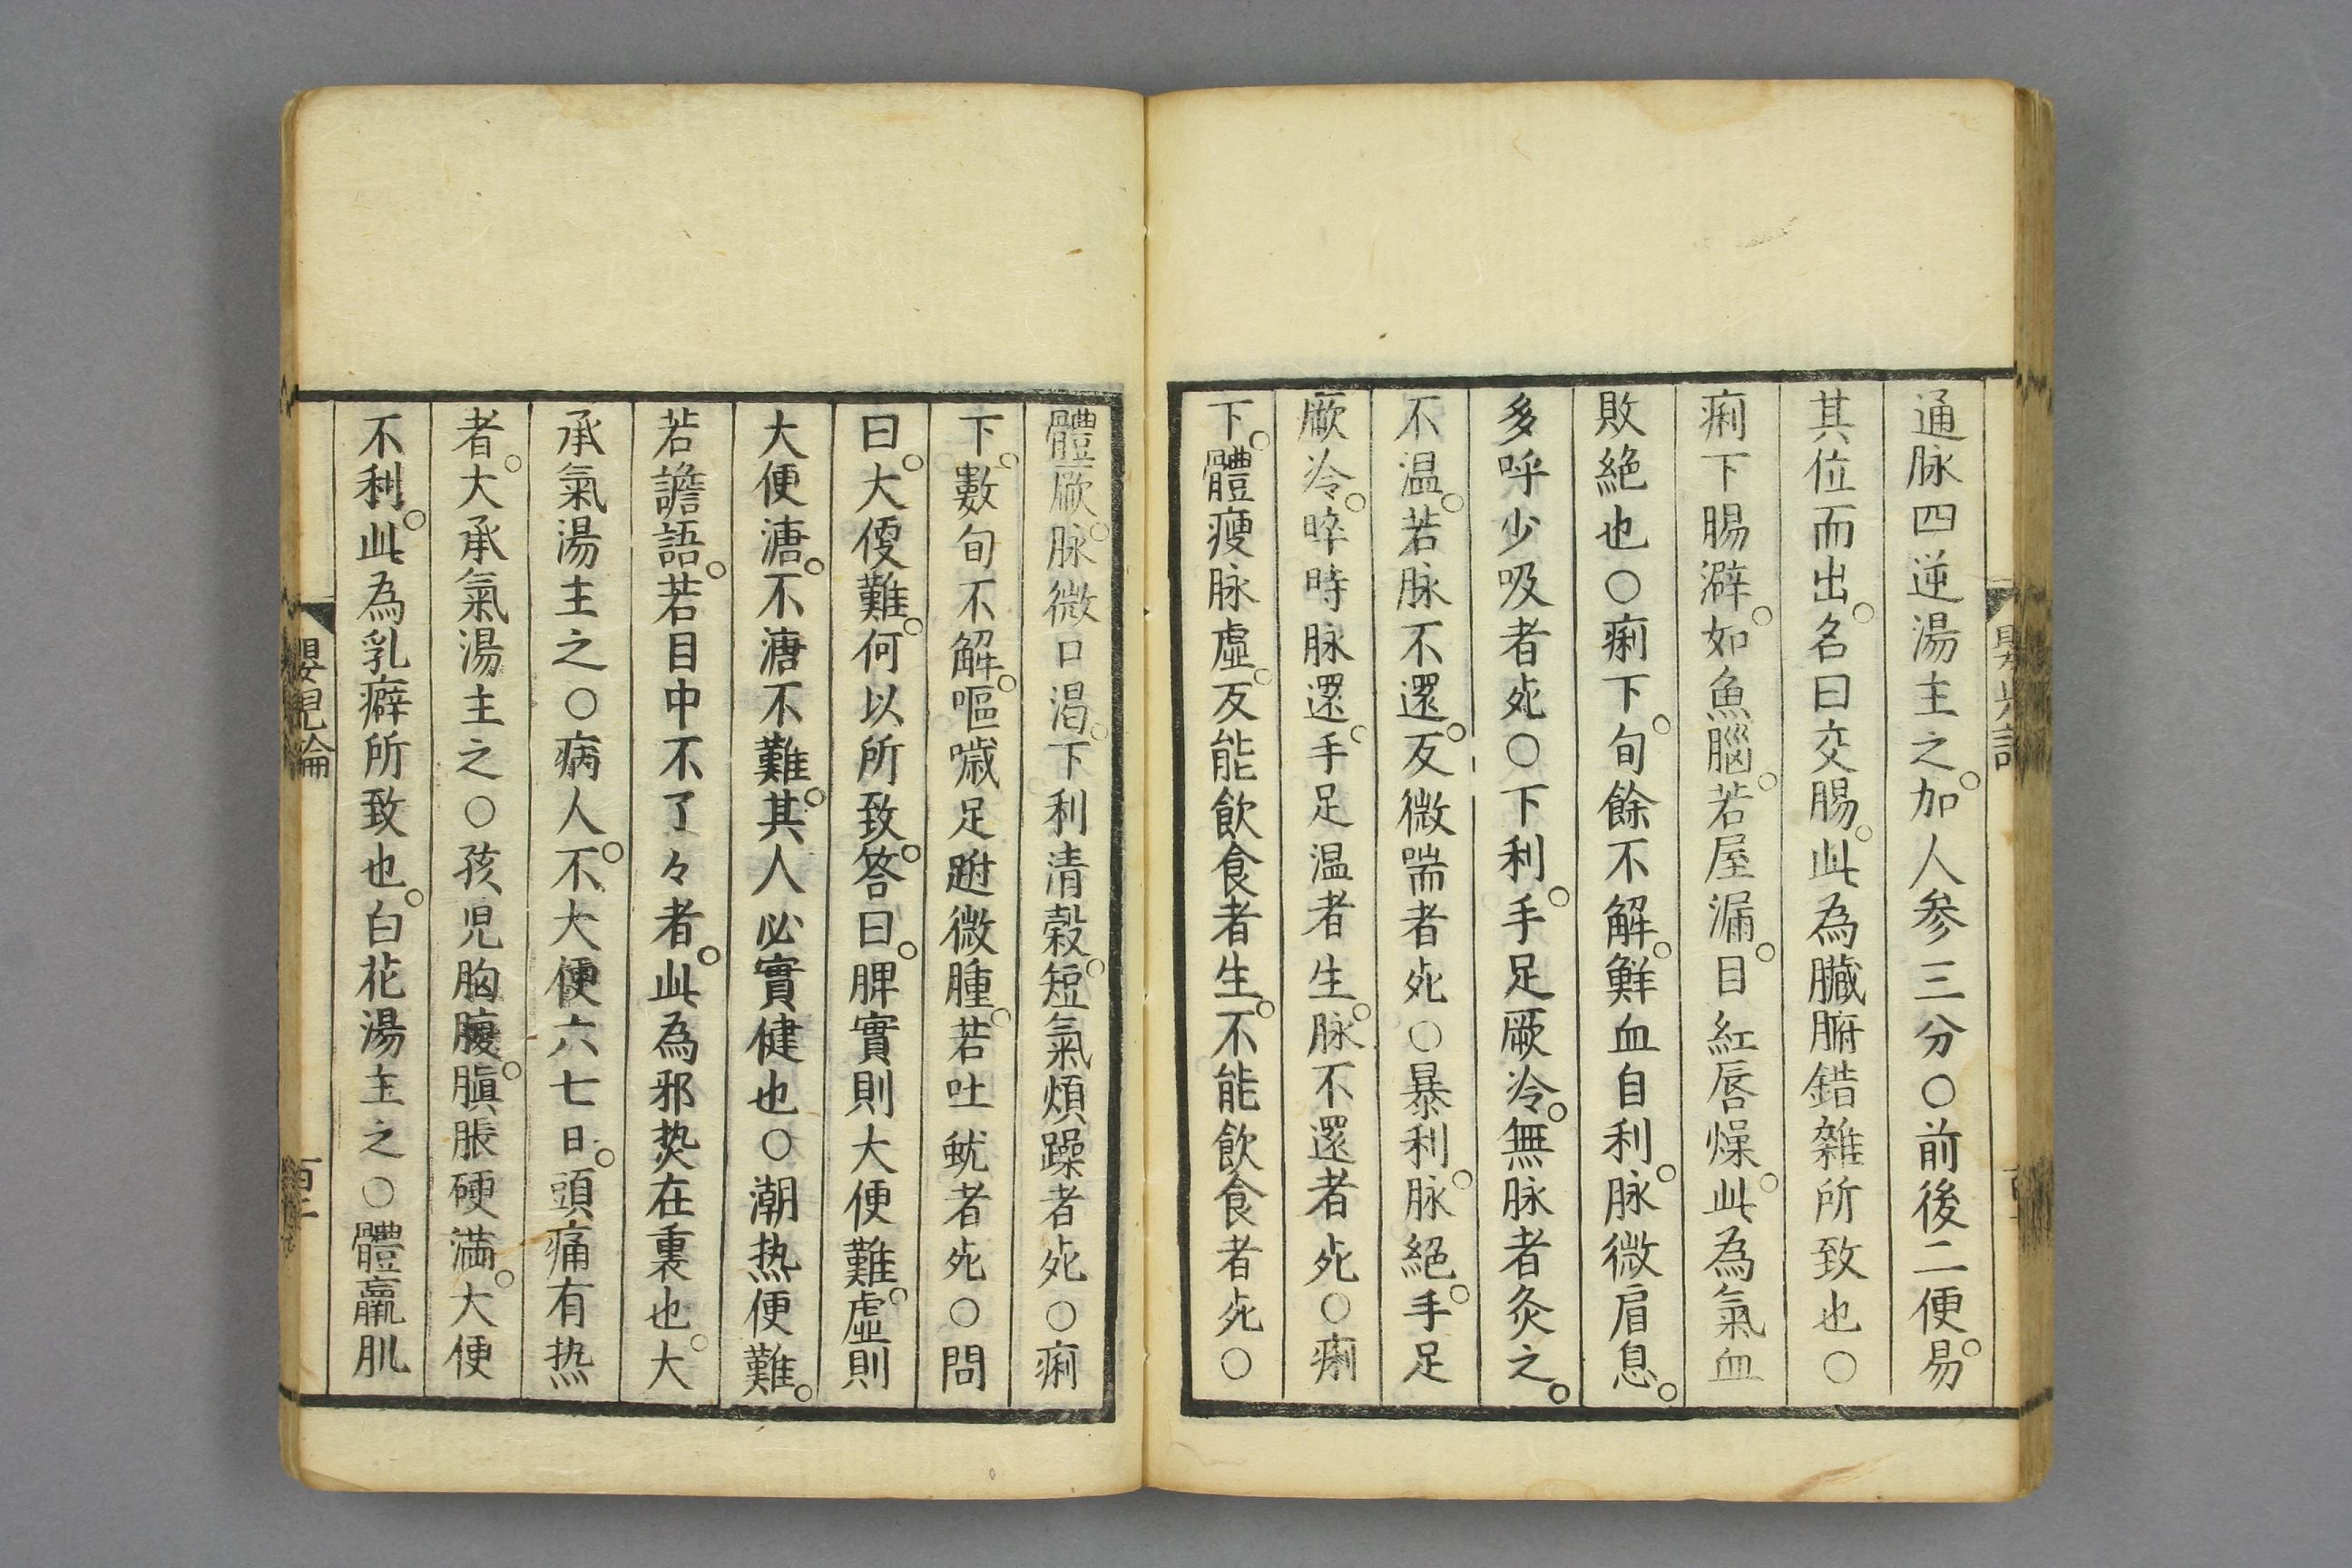 通脉四逆湯主之。加人参三分○前後二便。易
其位而出。名曰交腸。此為臓腑錯雑所致也○
痢下腸澼。如魚腦。若屋漏。目紅唇燥。此為氣血
敗絶也○痢下。旬餘不解。鮮血自利。脉微肩息。
多呼少吸者死○下利。手足厥冷。無脉者灸之。
不温。若脉不還。反微喘者死○暴利。脉絕。手足
厥冷。晬時脉還。手足温者生。脉不還者死○痢
下。體瘦脉虛。反能飲食者生。不能飲食者死○
體厥。脉微口渇。下利清穀。短氣煩躁者死○痢
下。數旬不解。嘔噦足跗微腫。若吐蚘者死○問
曰。大便難。何以所致。答曰。脾實則大便難。虛則
大便溏。不溏不難。其人必實健也○潮热便難。
若譫語。若目中不了々者。此為邪热在裏也。大
承氣湯主之○病人。不大便六七日。頭痛有热
者。大承氣湯主之○孩児胸腹。䐜脹硬満。大便
不利。此為乳癖所致也。白花湯主之○體羸肌
嬰児論